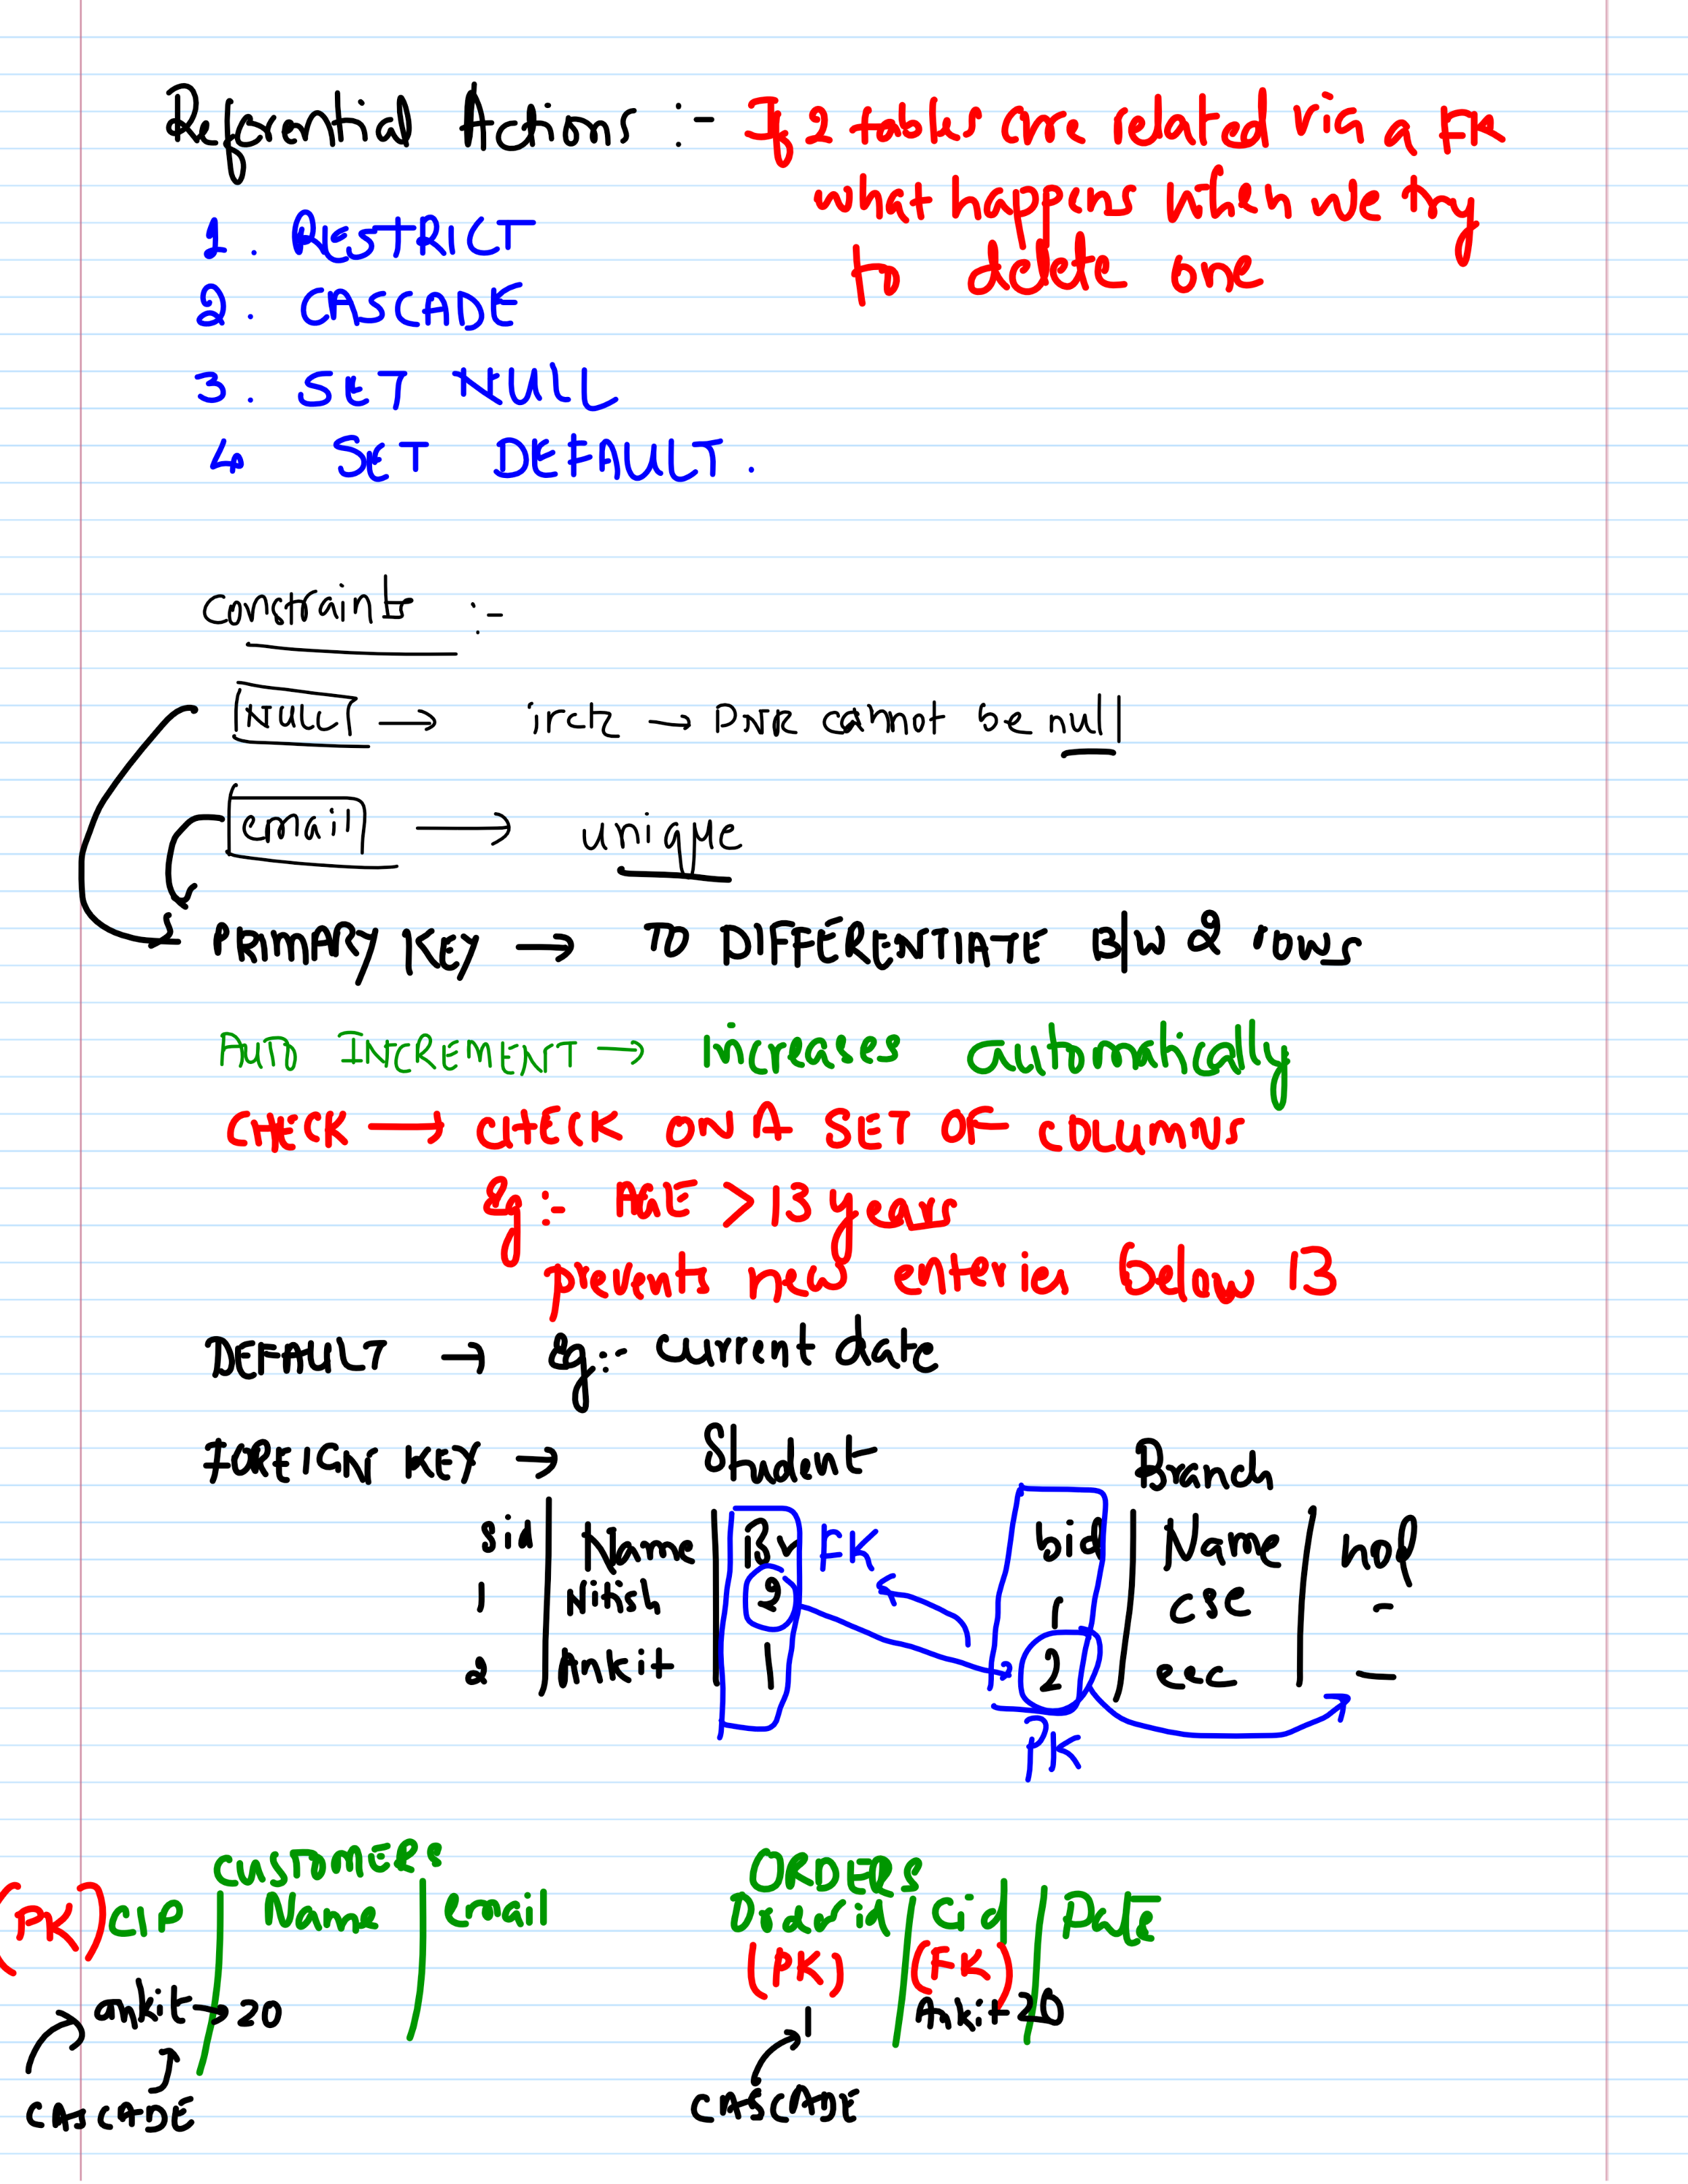 Referential Actions :- If 2 tables are related via a FK
what happens when we try
to delete one
1. RESTRICT
2. CASCADE
3. SET NULL
4 SET DEFAULT.
Constraints :-
NULL → irctc → PNR cannot be null
email → unique
PRIMARY KEY → TO DIFFERENTIATE B/W 2 rows
AUTO INCREMENT → increases automatically
CHECK → CHECK ON A SET OF COLUMNS
Eg:- AGE > 13 years
prevents new enteries below 13
DEFAULT → Eg:- current date
FOREIGN KEY → Student Branch
sid Name Br FK bid Name hod
1 Nitish 2 1 cse -
2 Ankit 1 2 ece -
PK
CUSTOMERS ORDERS
(PK) CID Name email Orderid Cid Date
(PK) (FK)
ankit → 20 1 Ankit 20
CASCADE CASCADE